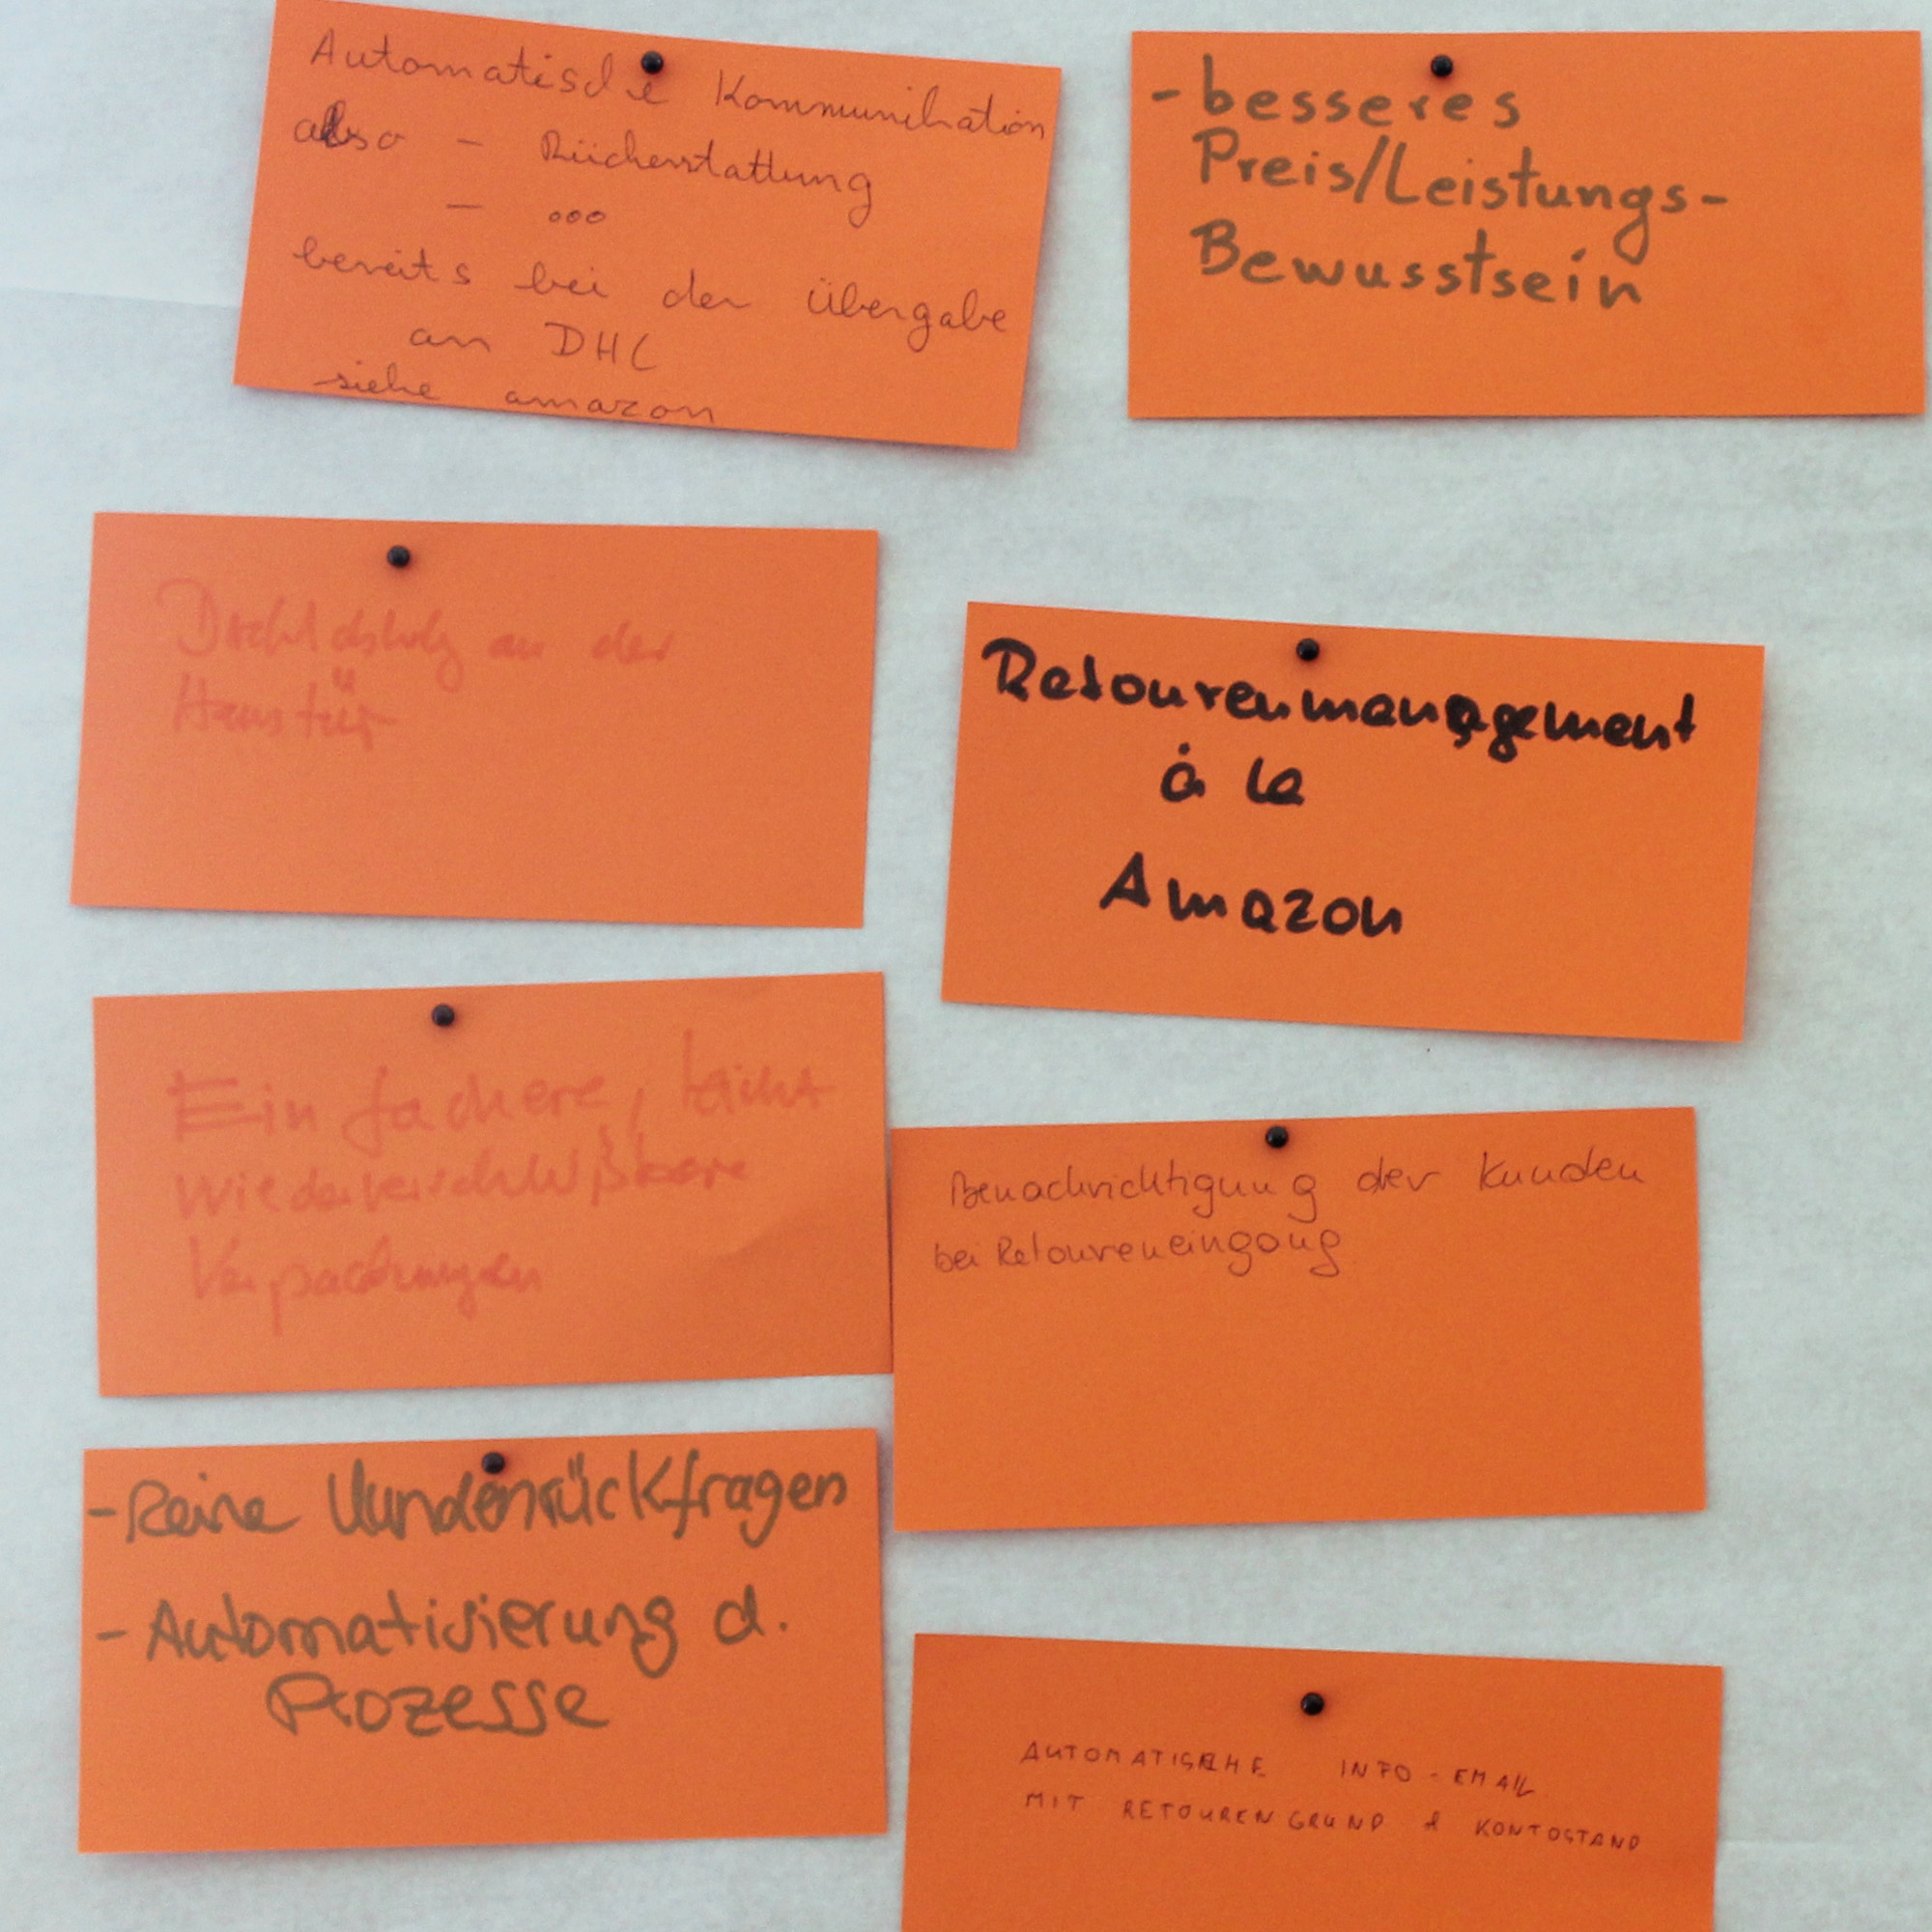 Automatische Kommunikation
also - Rückerstattung
- ooo
bereits bei der Übergabe
an DHL
siehe amazon
- besseres
Preis/Leistungs-
Bewusstsein
an der
Haustür
Retourenmanagement
à la
Amazon
Einfachere, leicht
wiederverschließbare
Verpackungen
Benachrichtigung der Kunden
bei Retoureneingang
- Keine Kundenrückfragen
- Automatisierung d.
Prozesse
AUTOMATISCHE INFO-EMAIL
MIT RETOURENGRUND & KONTOSTAND